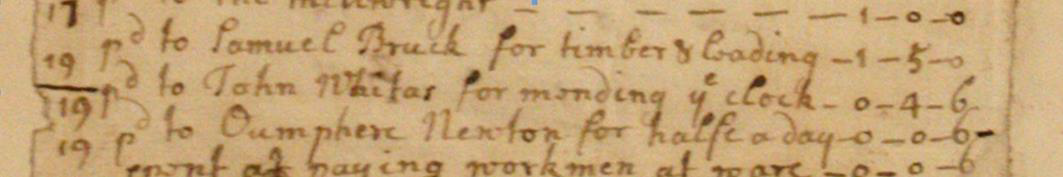 17 pd to the millwright — — — — — — 1 - 0 - 0
19 pd to Samuel Bruck for timber & loading - 1 - 5 - 0
19 pd to John Whitas for mending ye clock - 0 - 4 - 6
19 pd to Oumphere Newton for halfe a day - 0 - 0 - 6 -
spent at paying workmen at ware - 0 - 0 - 6